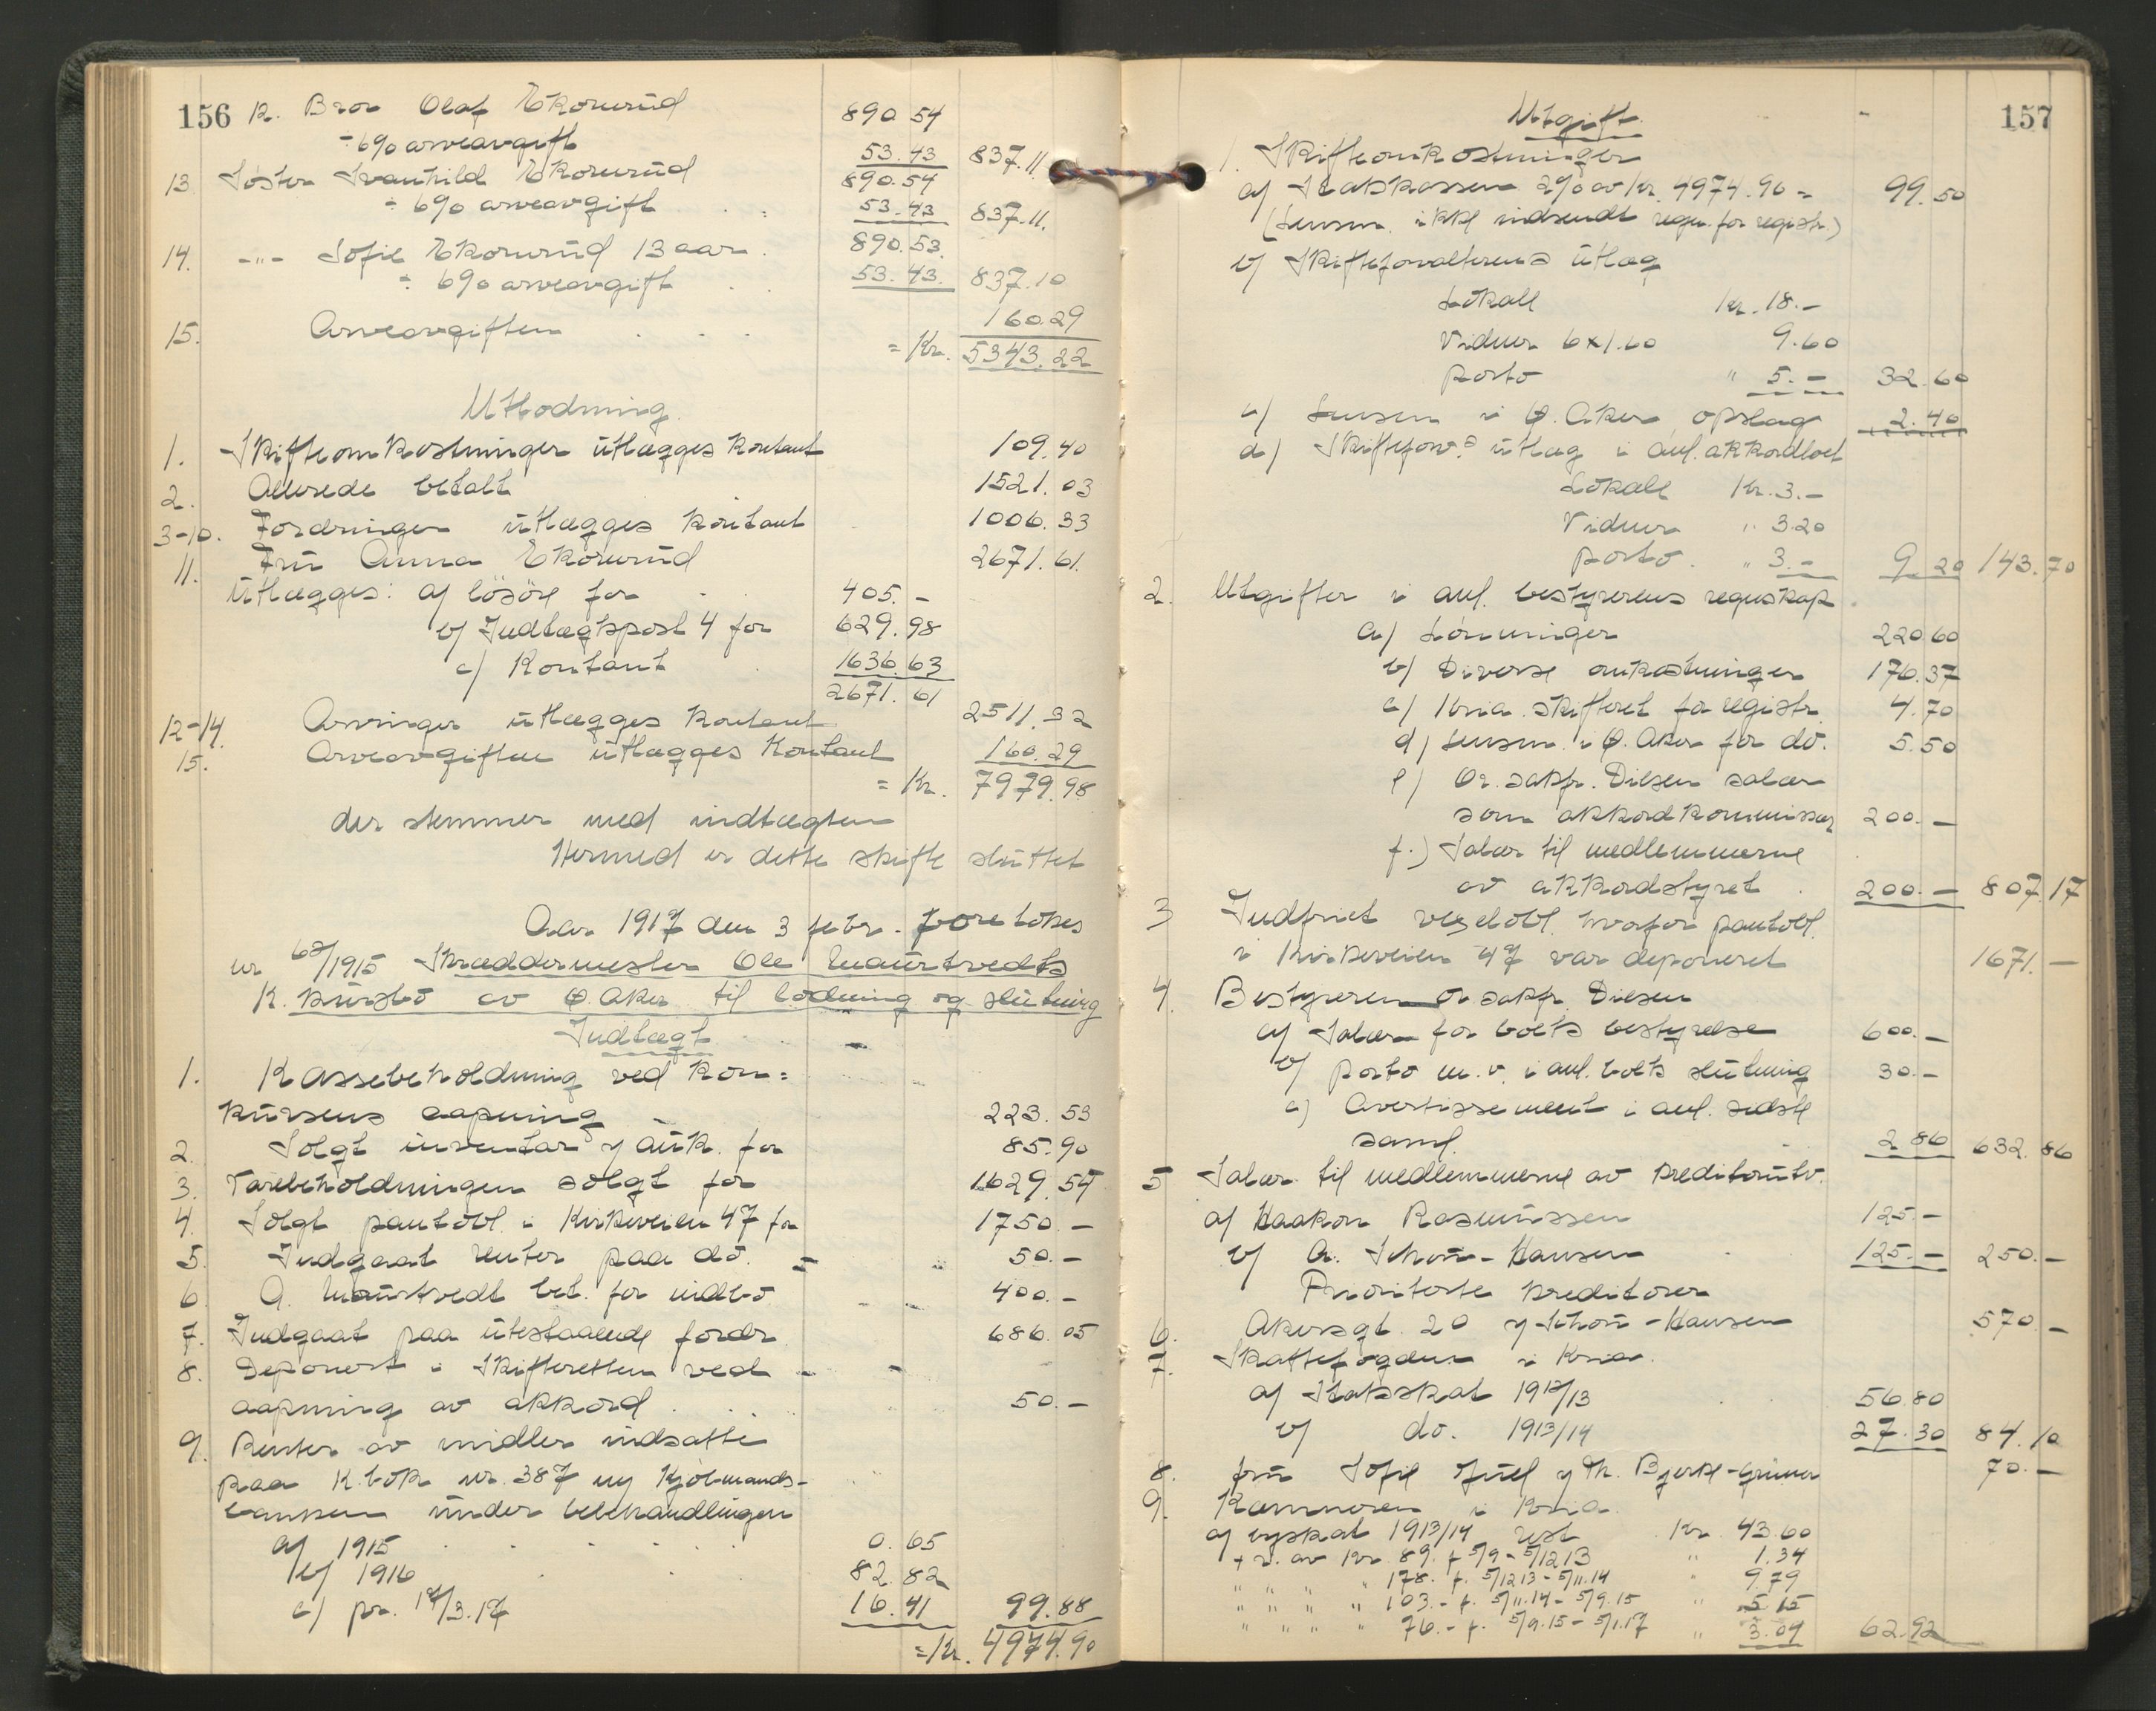 156
12. Bror Olaf Ekornrud 890.54
÷ 6% arveavgift 53.43 837.11
13. Søster Svanhild Ekornrud 890.54
÷ 6% arveavgift 53.43 837.11.
14. -"- Sofie Ekornrud 13 aar. 890.53.
÷ 6% arveavgift 53.43. 837.10
15. Arveavgiften 160.29
= Kr. 5343.22
Utlodning.
1. Skifteomkostninger utlægges kontant 109.40
2. Allerede betalt 1521.03
3-10. Fordringer utlægges kontant 1006.33
11. Fru Anna Ekornrud 2671.61.
Utlægges: a) løsøre for 405.-
b) Indtægtspost 4 for 629.98
c) Kontant 1636.63
2671.61
12-14. Arvinger utlægges kontant 2511.32
15. Arveavgiften utlægges kontant 160.29
= Kr. 7979.98
der stemmer med indtægten
Hermed er dette skifte sluttet
Aar 1917 den 3 febr. foretokes
nr /1915 Skræddermester Ole Maurtvedts
K. kursbo av Ø. Aker til lodning og slutning
Indtægt.
1. Kassebeholdning ved kon=
kursens aapning 223.53
2. Solgt inventar v/ auk. for 85.90
3. Varebeholdningen solgt for 1629.54
4. Solgt pantobl. i Kirkeveien 47 for 1750.-
5. Indgaat renter paa do. 50.-
6. A. Maurtvedt bet. for indbo 400.-
7. Indgaat paa utestaaende fordr. 686.05
8. Deponert i Skifteretten ved
aapning av akkord 50.-
9. Renter av midler indsatte
paa K. bok nr. 387 ny Kjøbmands-
banken under bobehandlingen
a) 1915 0.65
b) 1916 82.82
c) pr. 17/3.17 16.41 99.88
= Kr. 4974.90
157
Utgift.
1. Skifteomkostninger
a) Statskassen 2% av kr. 4974.90 = 99.50
(Lensm. ikke indsendt regn. for registr.)
b) Skifteforvalterens utlæg
Lokale Kr. 18.-
Vidner 6x1.60 9.60
porto " 5.- 32.60
c) Lensm. i Ø. Aker, opslag 2.40
d) Skifteforv.s utlæg i anl. akkordboet
Lokale Kr. 3.-
Vidner " 3.20
porto. " 3.- 9.20 143.70
2. Utgifter i anl. bestyrerens regnskap.
a) Lønninger 220.60
b) Diverse omkostninger 176.37
c) Kria. skifteret for registr. 4.70
d) Lensm. i Ø. Aker for do. 5.50
e) Or. sakfr. Diesen salær
som akkordkommissær 200.-
f.) Salær til medlemmerne
av akkordstyret 200.- 807.17
3 Indfriet vexelobl. hvorfor pantobl.
i Kirkeveien 47 var deponeret 1671.-
4. Bestyreren Or. sakfr. Diesen
a) Salær for boets bestyrelse 600.-
b) porto m.v. i anl. boets slutning 30.-
c) Avertissement i anl. sidste
saml. 2.86 632.86
5 Salær til medlemmerne av kreditorutv.
a) Haakon Rasmussen 125.-
b) A. Schou-Hansen 125.- 250.-
Prioriterte kreditorer
6. Akersgt. 20 v/ Schou-Hansen 570.-
7. Skattefogden i Kria.
a) Statsskat 1912/13 56.80
b) do. 1913/14 27.30 84.10
8. fru Sofie Juel v/ Th. Bjerke-Grüner 70.-
9. Kæmneren i Kria.
a) byskat 1913/14 rest Kr. 43.60
+ r. av Kr. 89. f. 5/9 - 5/12 13 " 1.34
" " " " 178.- f. 5/12 13 - 5/11.14 " 9.79
" " " " 103.- f. 5/11.14 - 5/9.15 " 5.15
" " " " 76.- f. 5/9.15 - 5/1.17 " 3.09 62.92